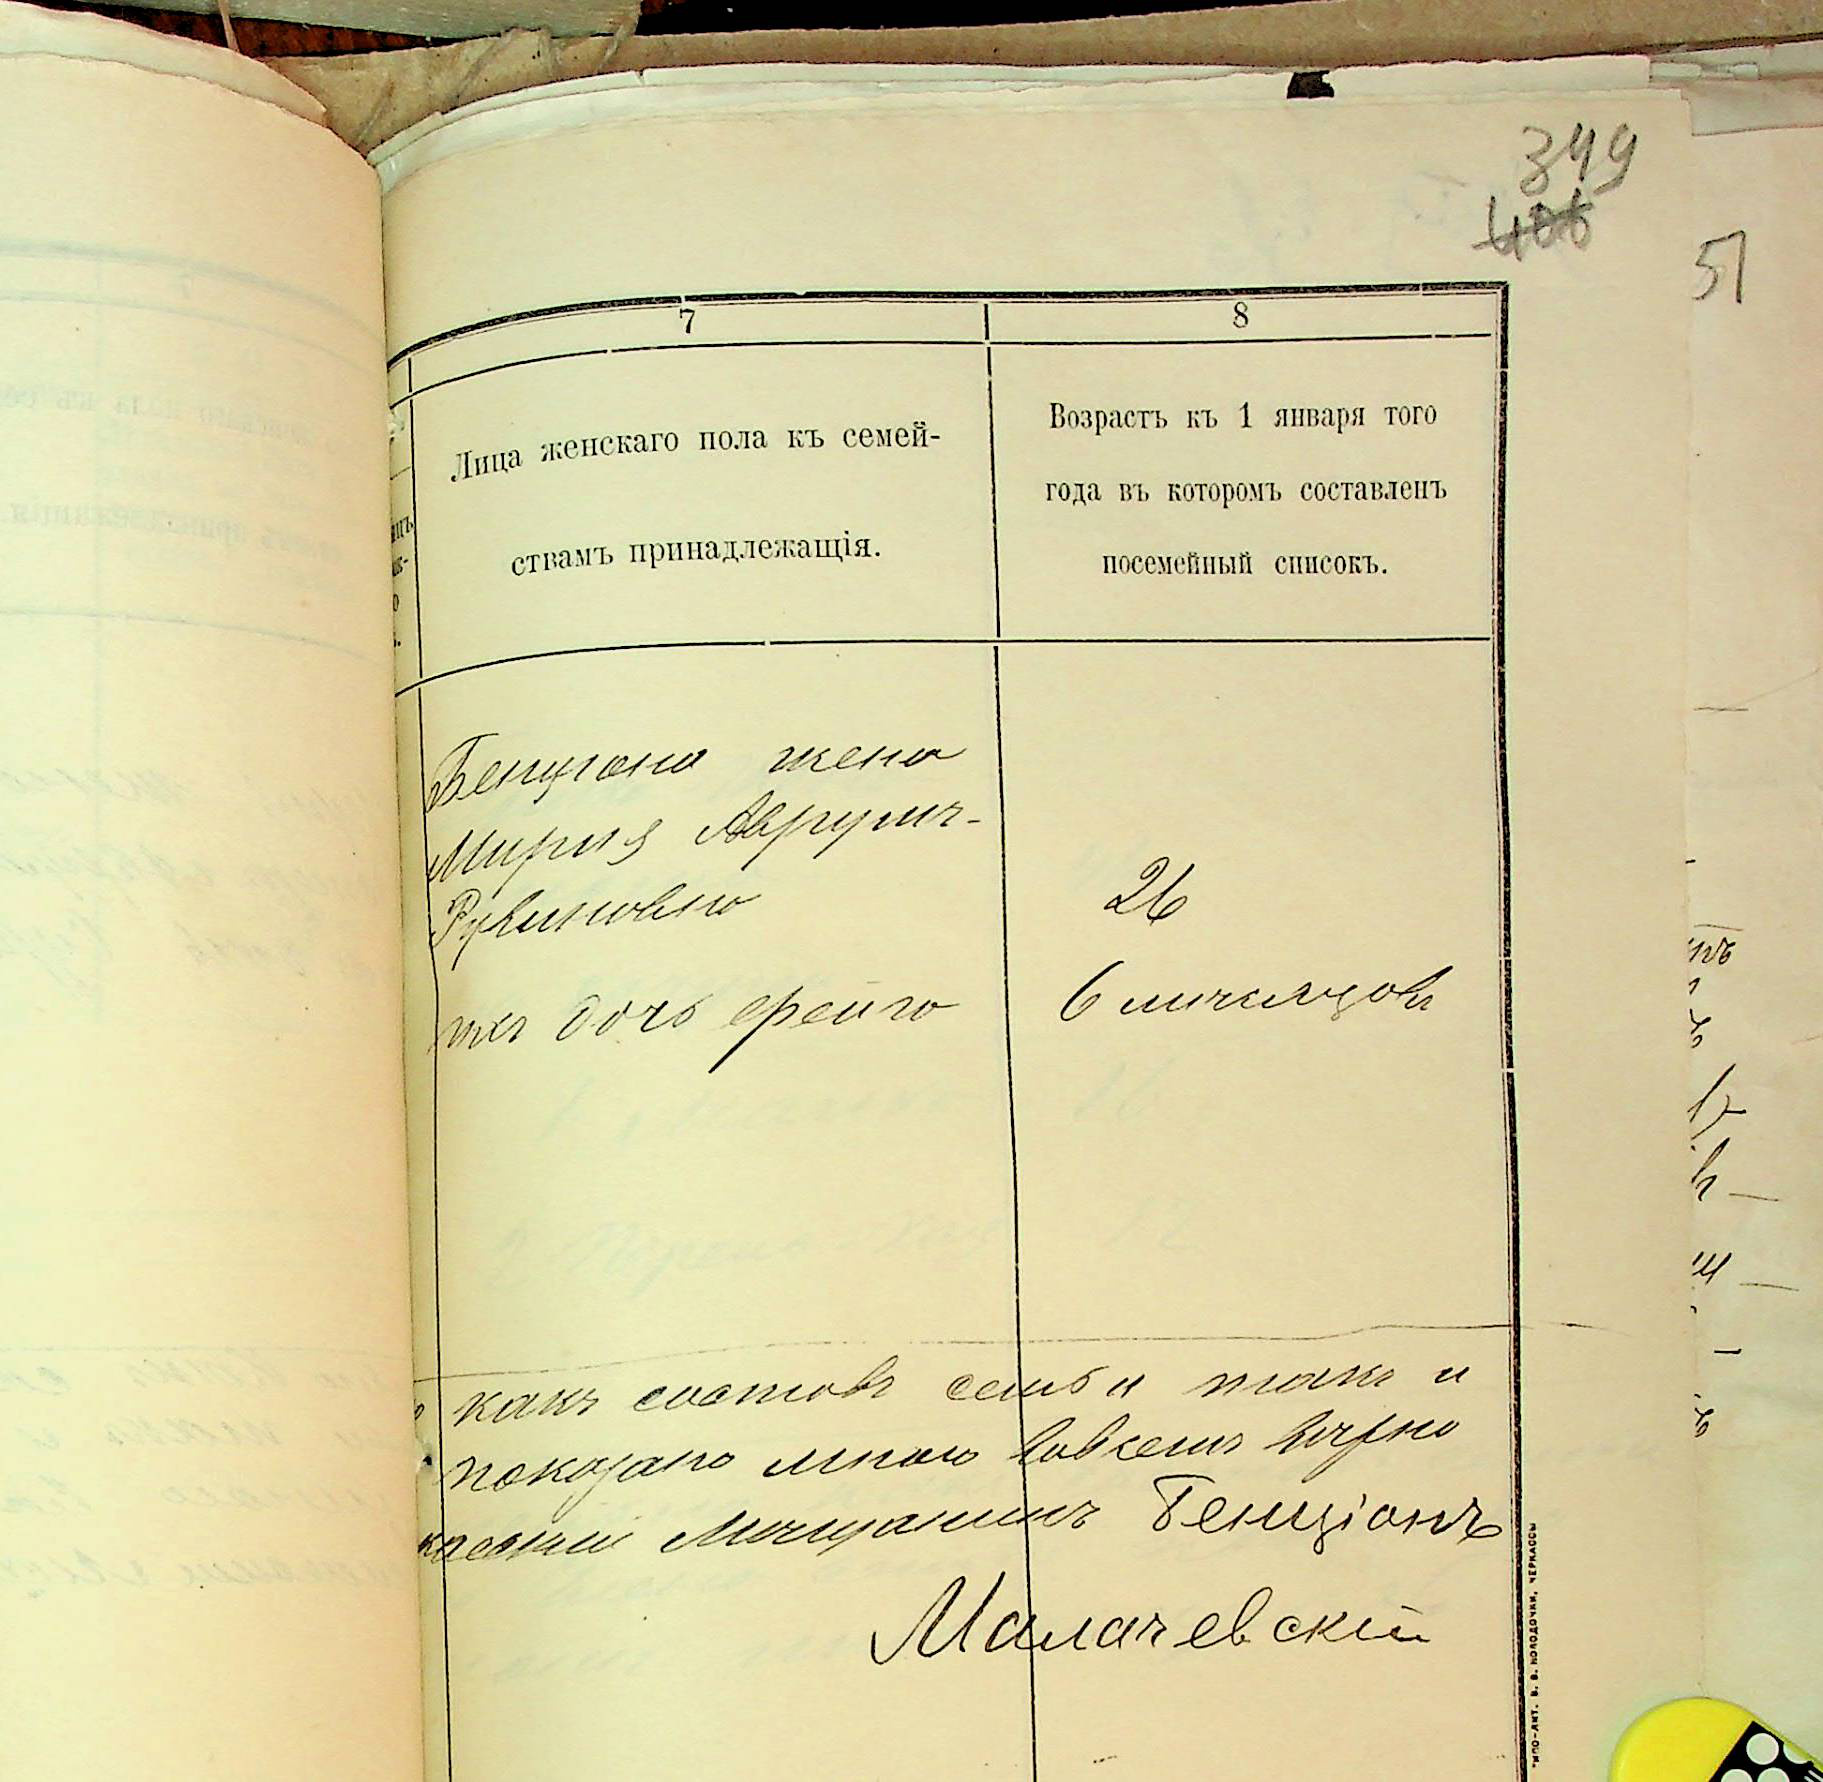 399
406
51
7
8
Лица женскаго пола къ семей-
ствамъ принадлежащія.
Возрастъ къ 1 января того
года въ которомъ составленъ
посемейный списокъ.
Бенциона жена
Мирия Аврумъ-
Рувиновна
26
ихъ дочь Фейга
6 мѣсяцовъ
какъ составъ семьи такъ и
показано мною совсемъ вѣрно
касский мѣщанинъ Бенціонъ
Малачевскій
Типо-лит. В. В. Колодочки, Черкассы